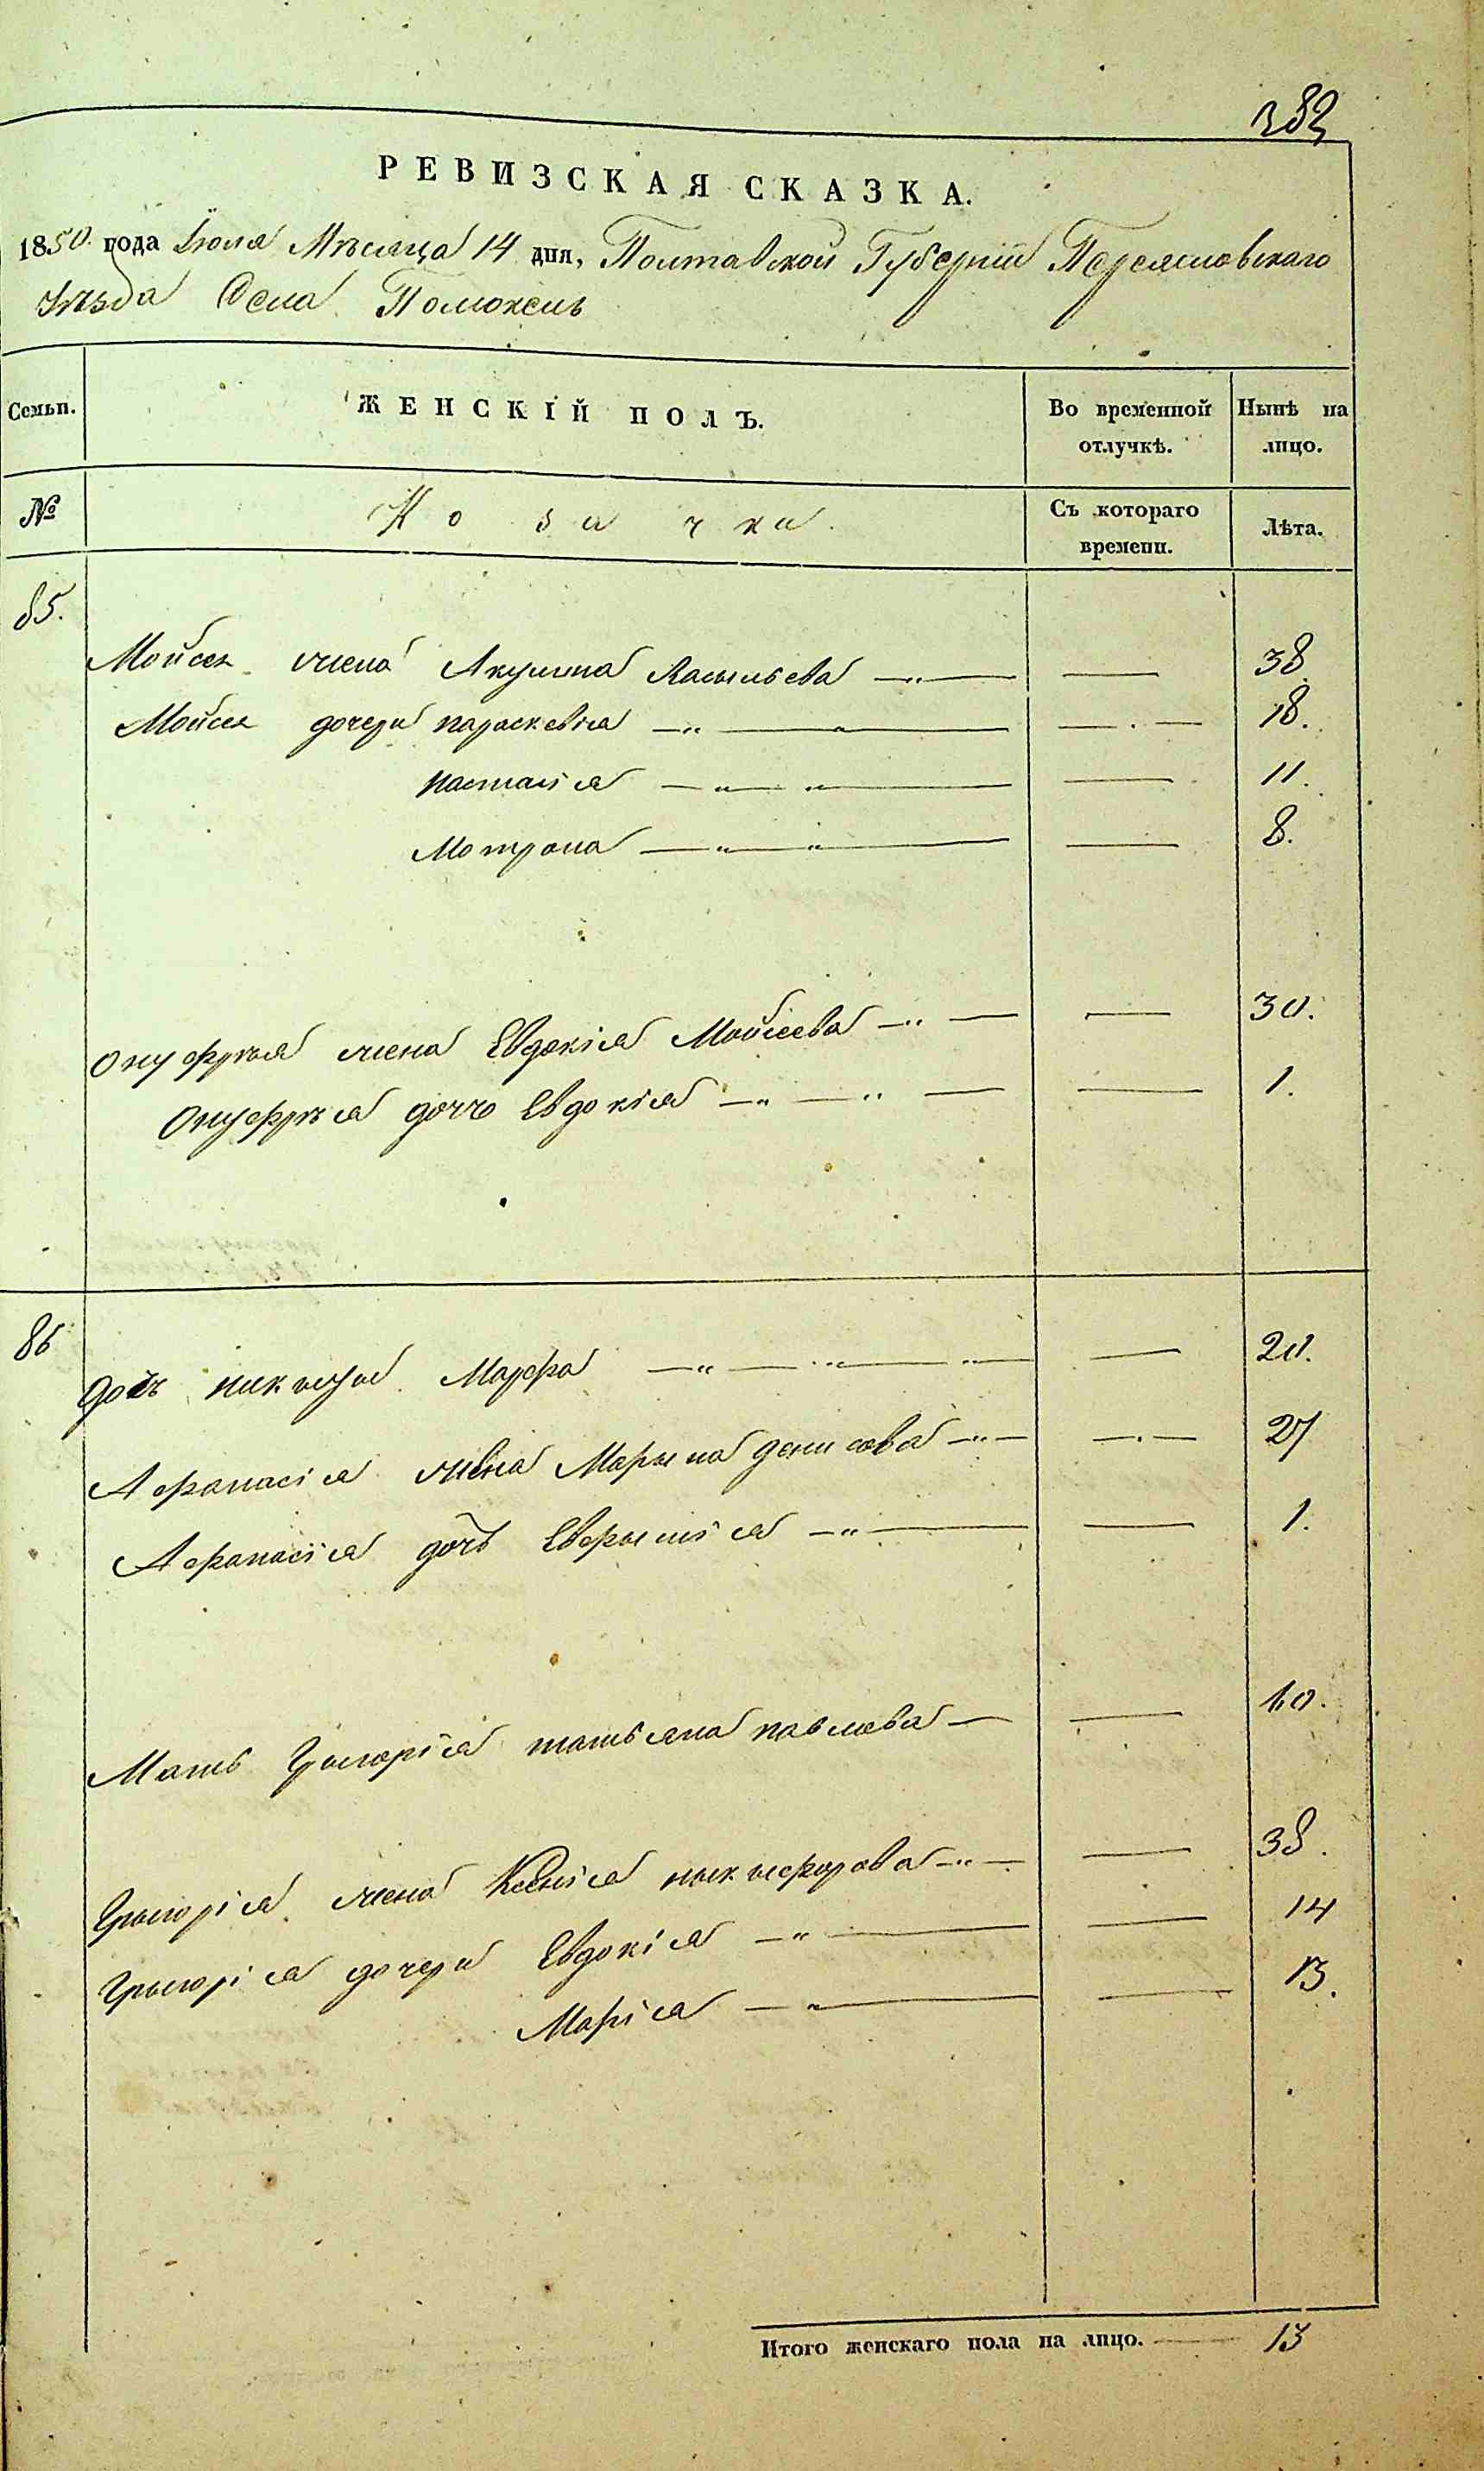 382
РЕВИЗСКАЯ СКАЗКА.
1850. года Іюля Мѣсяца 14 дня, Полтавской Губерніи Переяславскаго
уѣзда Села Помоклъ
Семьи. ЖЕНСКІЙ ПОЛЪ. Во временной отлучкѣ. Нынѣ на лицо.
№ Козачки. Съ котораго времени. Лѣта.
85.
Мойсея жена Акулина Васильева — 38.
Мойсея дочери параскевія — 18.
настасія — 11.
Мотрона — 8.
Онуфрѣя жена Евдокія Мойсеева — 30.
Онуфрѣя дочь Евдокія — 1.
86
дочь Марфа — 20.
Афанасія жена Марына денисова — 27
Афанасія дочь Евфымія — 1.
Мать Грыгорія татьяна павлова — 60.
Грыгорія жена Ксенія ныкыфорова — 38.
Грыгорія дочери Евдокія — 14
Марія — 13.
Итого женскаго пола на лицо. — 13